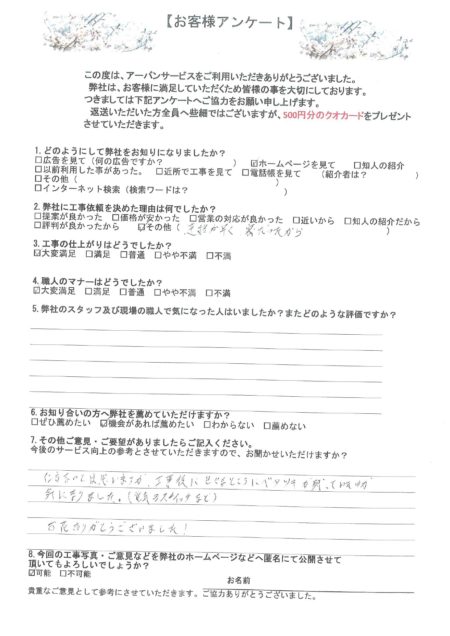 【お客様アンケート】
この度は、アーバンサービスをご利用いただきありがとうございました。
弊社は、お客様に満足していただくため皆様の事を大切にしております。
つきましては下記アンケートへご協力をお願い申し上げます。
返送いただいた方全員へ些細ではございますが、500円分のクオカードをプレゼント
させていただきます。
1.どのようにして弊社をお知りになりましたか?
□広告を見て(何の広告ですか? ) ☑ホームページを見て □知人の紹介
□以前利用した事があった。 □近所で工事を見て □電話帳を見て (紹介者は? )
□その他( )
□インターネット検索(検索ワードは? )
2.弊社に工事依頼を決めた理由は何でしたか?
□提案が良かった □価格が安かった □営業の対応が良かった □近いから □知人の紹介だから
□評判が良かったから ☑その他( )
3.工事の仕上がりはどうでしたか?
☑大変満足 □満足 □普通 □やや不満 □不満
4.職人のマナーはどうでしたか?
☑大変満足 □満足 □普通 □やや不満 □不満
5.弊社のスタッフ及び現場の職人で気になった人はいましたか?またどのような評価ですか?
6.お知り合いの方へ弊社を薦めていただけますか?
□ぜひ薦めたい ☑機会があれば薦めたい □わからない □薦めない
7.その他ご意見・ご要望がありましたらご記入ください。
今後のサービス向上の参考とさせていただきますので、お聞かせいただけますか?
気になりました。
ありがとうございました!
8.今回の工事写真・ご意見などを弊社のホームページなどへ匿名にて公開させて
頂いてもよろしいでしょうか?
☑可能 □不可能
お名前
貴重なご意見として参考にさせていただきます。ご協力ありがとうございました。